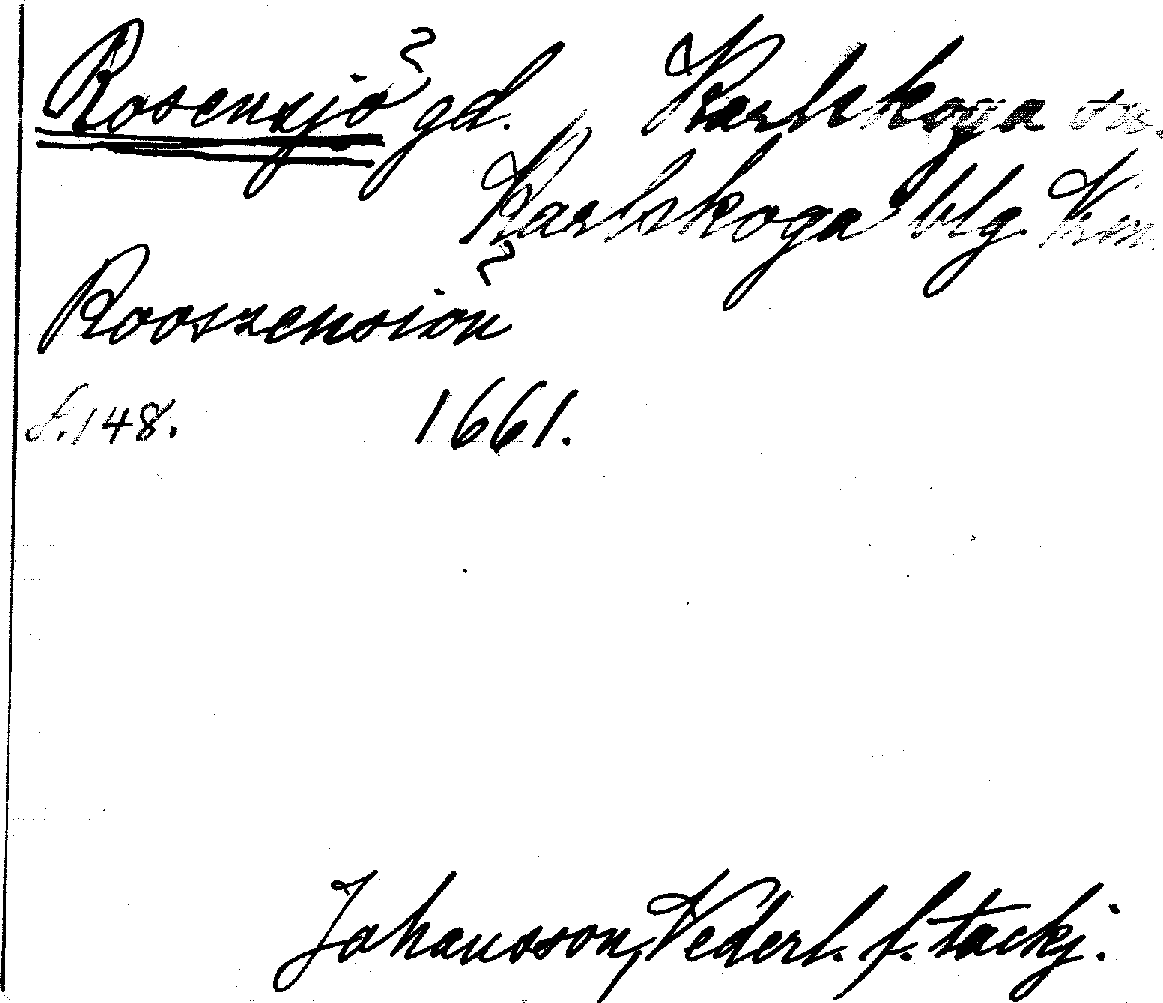 Rosensjö gd. Karlskoga sn.
Karlskoga blg Vrm.
Rooszensiön
f. 148. 1661.
Johansson, Vederl. f. tackj.